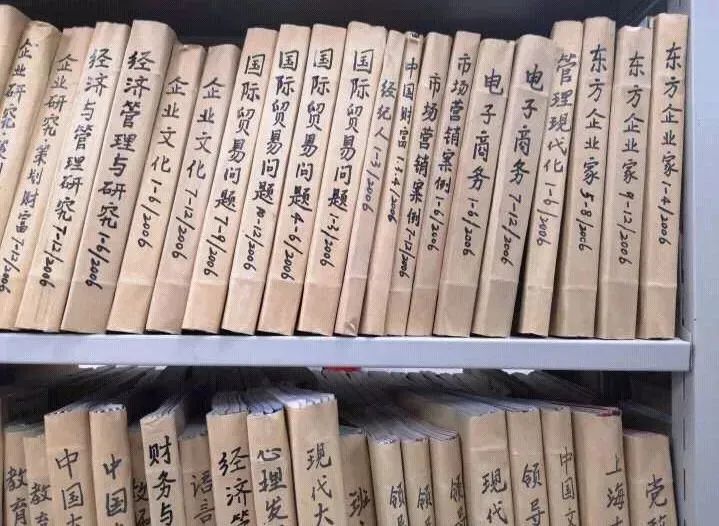 企业研究策划财富 7-12/2006
企业研究策划财富 7-12/2006
经济与管理研究 7-12/2006
经济管理与研究 1-6/2006
企业文化 1-6/2006
企业文化 7-12/2006
国际贸易问题 7-9/2006
国际贸易问题
国际贸易问题 4-6/2006
国际贸易问题 1-3/2006
经纪人
中国财富 1-3-4/2006
市场营销案例 7-12/2006
市场营销案例 1-6/2006
电子商务 1-6/2006
电子商务 7-12/2006
管理现代化 1-6/2006
东方企业家 5-8/2006
东方企业家 9-12/2006
东方企业家 1-4/2006
教育
教育
中国
中国
财务与
语言
经济管
心理发
现代大
班
领导
领导
领导
现代
领导
中国
上海
党